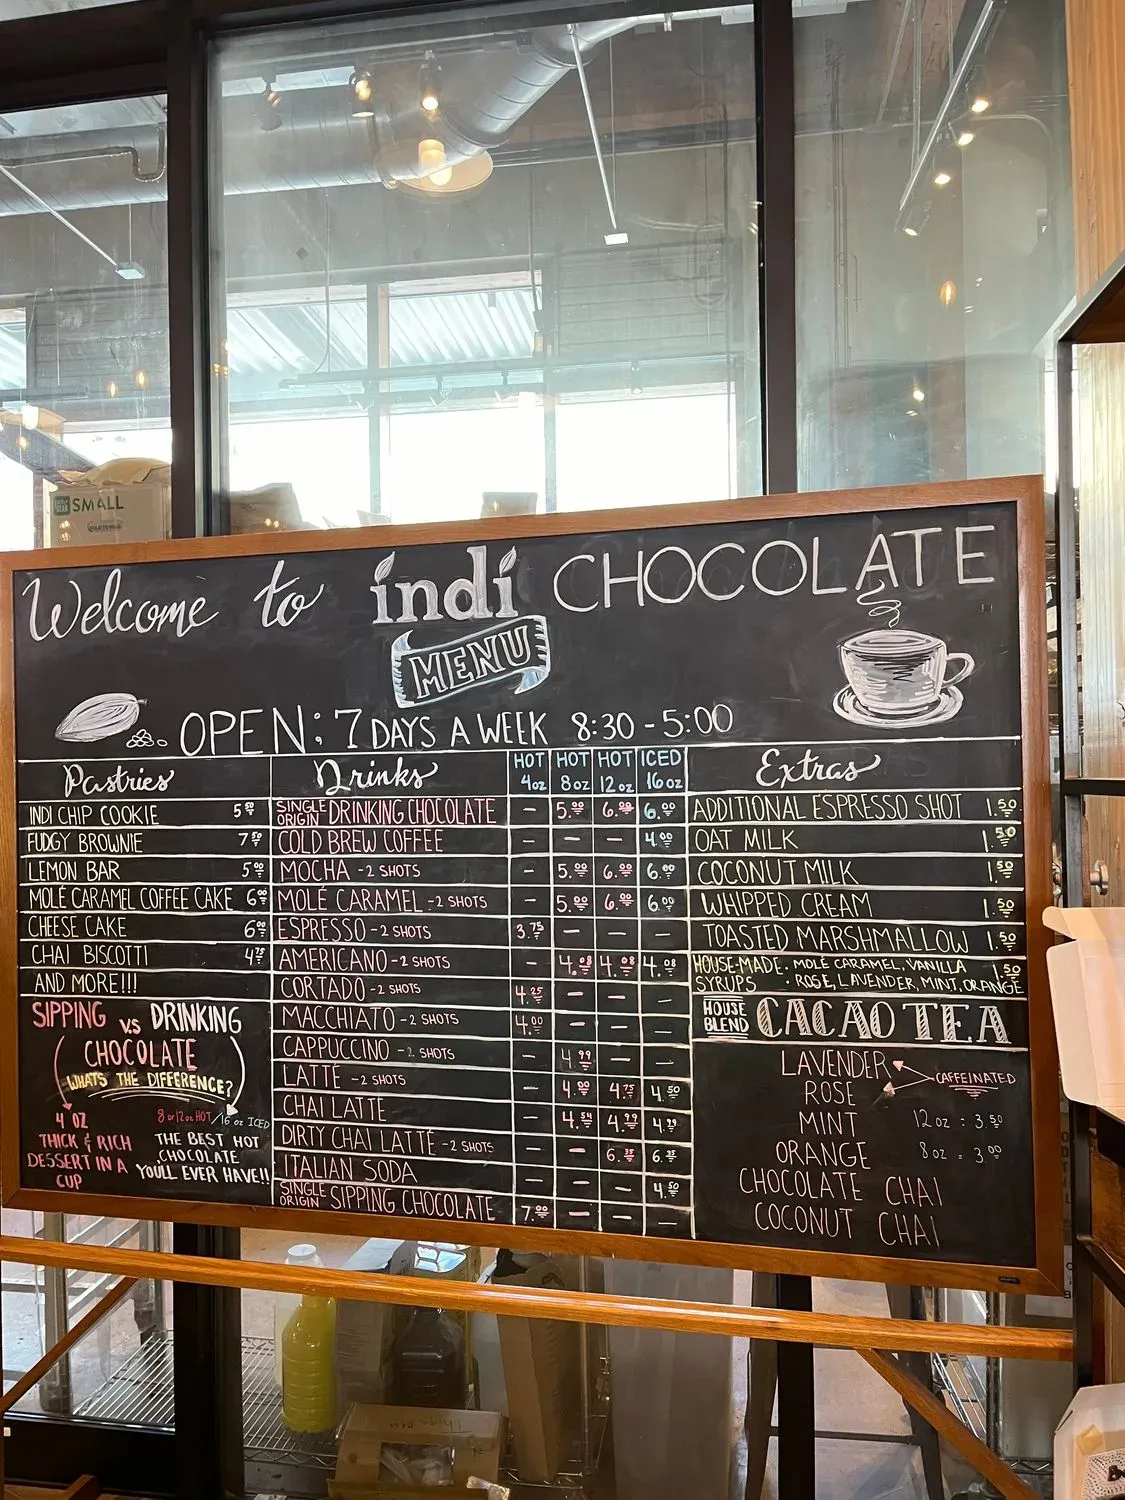 SMALL
Welcome to indi CHOCOLATE
MENU
OPEN: 7 DAYS A WEEK 8:30 - 5:00
Pastries
INDI CHIP COOKIE 5.50
FUDGY BROWNIE 7.50
LEMON BAR 5.00
MOLÉ CARAMEL COFFEE CAKE 6.00
CHEESE CAKE 6.00
CHAI BISCOTTI 4.75
AND MORE!!!
SIPPING VS DRINKING
CHOCOLATE
WHATS THE DIFFERENCE?
4 OZ
THICK & RICH
DESSERT IN A
CUP
8 or 12 oz HOT / 16 oz ICED
THE BEST HOT
CHOCOLATE
YOU'LL EVER HAVE!!
Drinks HOT 4oz HOT 8oz HOT 12oz ICED 16oz
SINGLE ORIGIN DRINKING CHOCOLATE – 5.00 6.00 6.00
COLD BREW COFFEE 4.00
MOCHA - 2 SHOTS – 5.00 6.00 6.00
MOLÉ CARAMEL - 2 SHOTS – 5.00 6.00 6.00
ESPRESSO - 2 SHOTS 3.75 – – –
AMERICANO - 2 SHOTS – 4.08 4.08 4.08
CORTADO - 2 SHOTS 4.25 – – –
MACCHIATO - 2 SHOTS 4.00 – – –
CAPPUCCINO - 2 SHOTS – 4.99 – –
LATTE - 2 SHOTS – 4.00 4.75 4.50
CHAI LATTE – 4.54 4.99
DIRTY CHAI LATTE - 2 SHOTS – – 6.35 6.35
ITALIAN SODA – – – 4.50
SINGLE ORIGIN SIPPING CHOCOLATE 7.00 – – –
Extras
ADDITIONAL ESPRESSO SHOT 1.50
OAT MILK 1.50
COCONUT MILK 1.50
WHIPPED CREAM 1.50
TOASTED MARSHMALLOW 1.50
HOUSE-MADE SYRUPS : MOLÉ CARAMEL, VANILLA 1.50
: ROSE, LAVENDER, MINT, ORANGE
HOUSE BLEND CACAO TEA
LAVENDER
ROSE
CAFFEINATED
MINT
12 oz = 3.50
ORANGE
8 oz = 3.00
CHOCOLATE CHAI
COCONUT CHAI